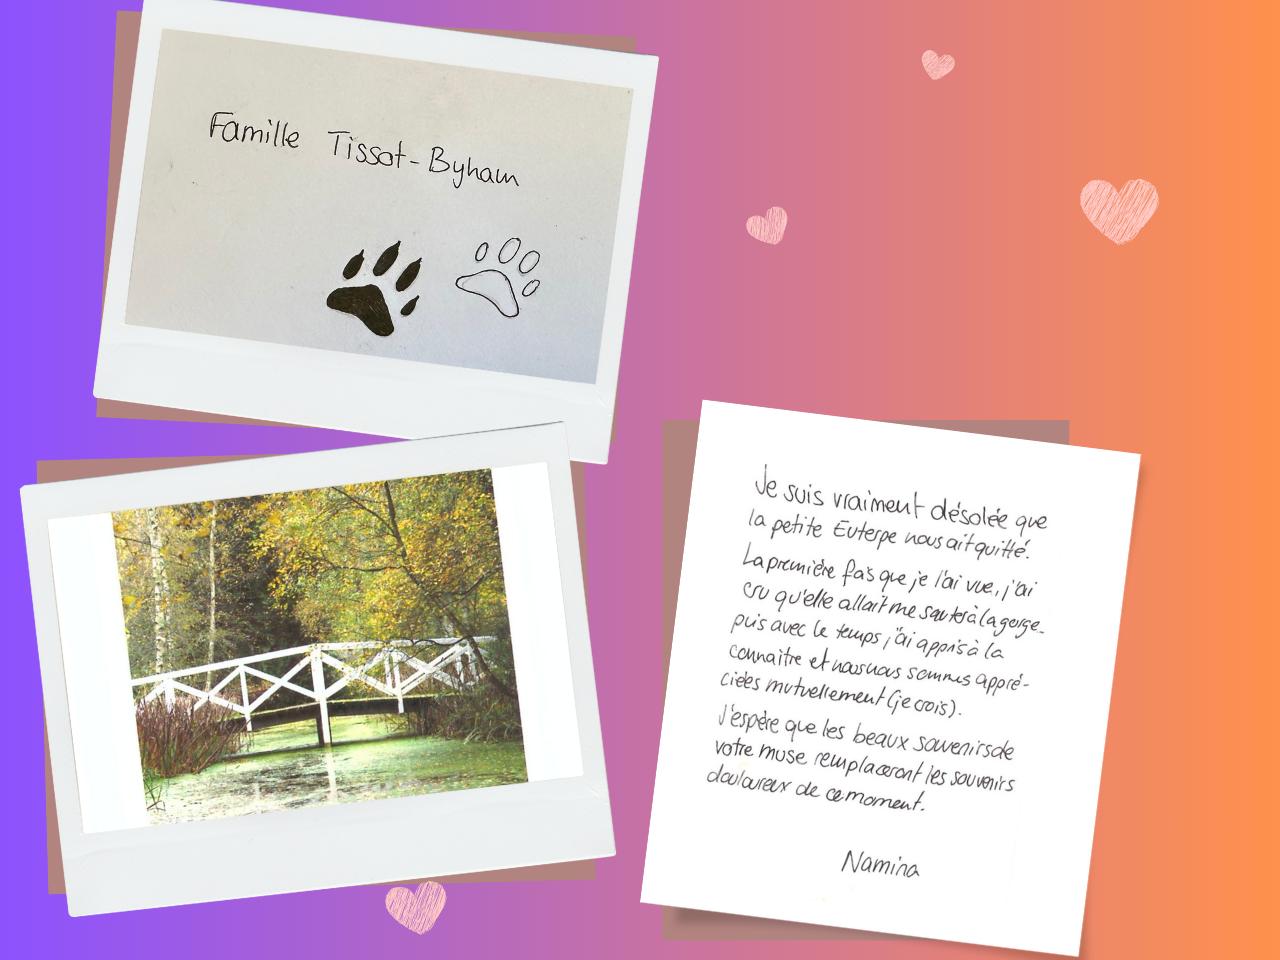 Famille Tissot-Byham
Je suis vraiment désolée que
la petite Euterpe nous ait quitté.
La première fois que je l'ai vue, j'ai
cru qu'elle allait me sauter à la gorge.
puis avec le temps j'ai appris à la
connaître et nous nous sommes appré-
ciées mutuellement (je crois).
J'espère que les beaux souvenirs de
votre muse remplaceront les souvenirs
douloureux de ce moment.
Namina